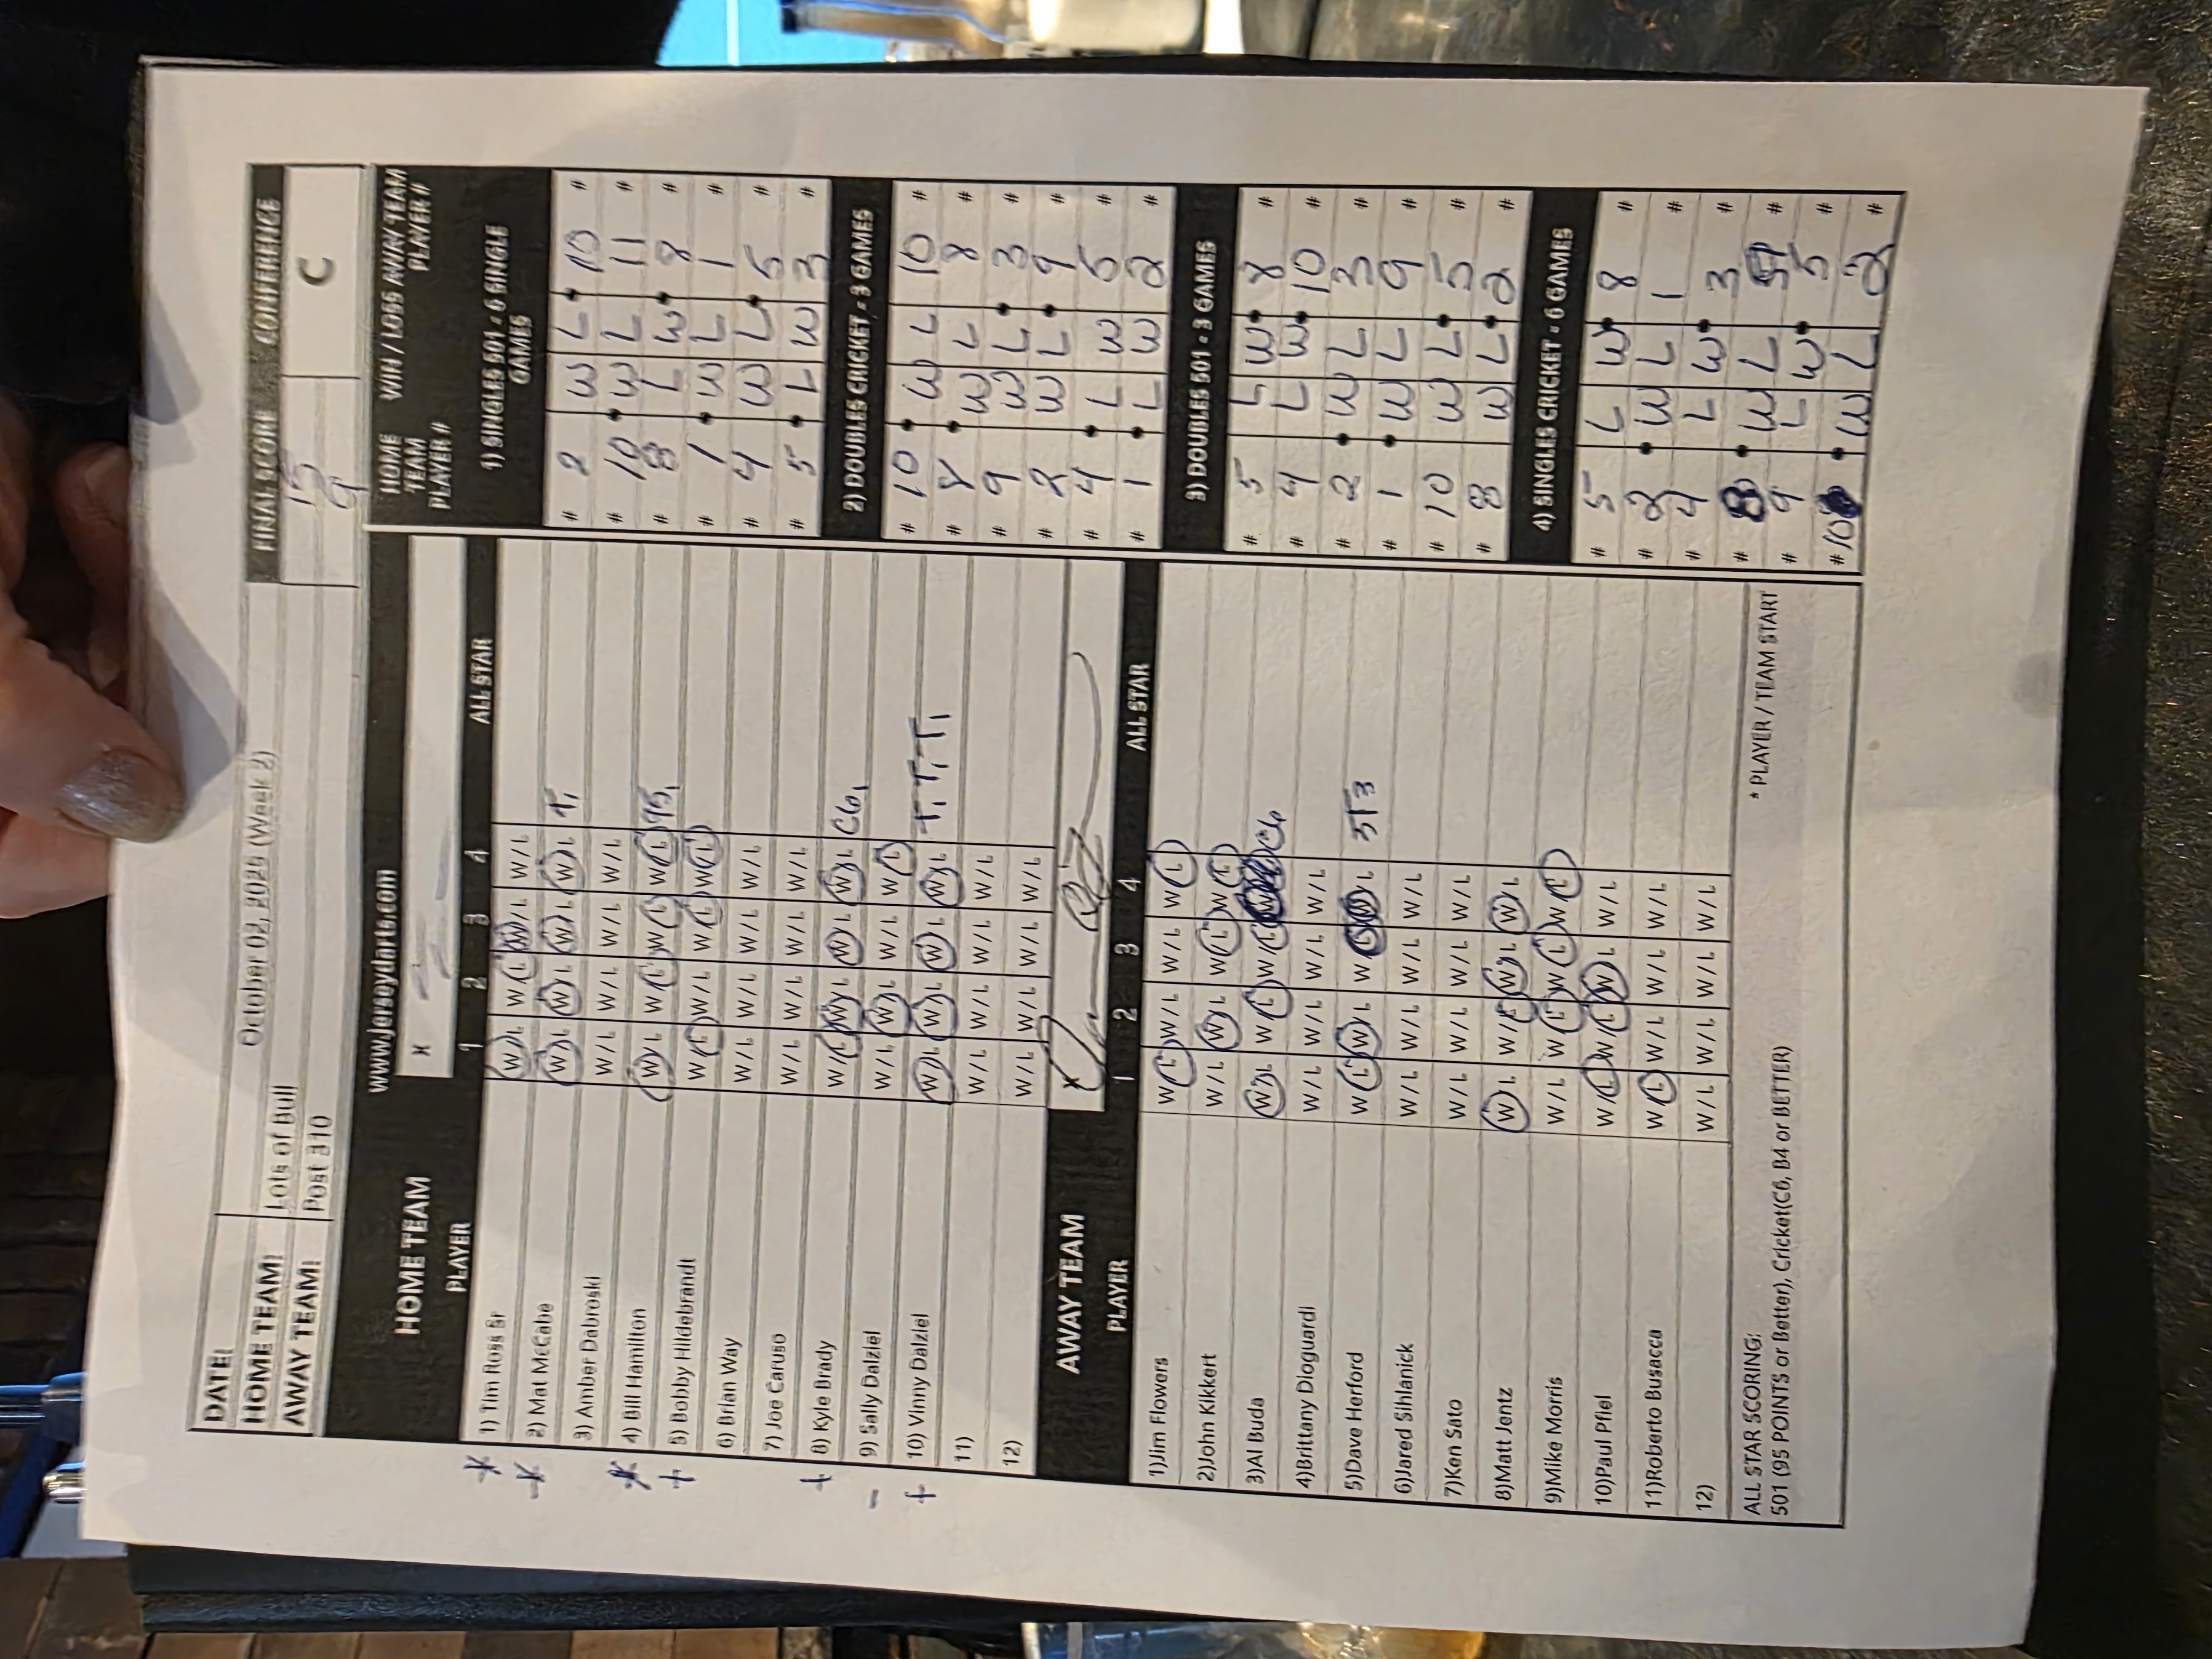 DATE: October 02, 2025 (Week 2)
HOME TEAM: Lots of Bull
AWAY TEAM: Post 310
FINAL SCORE CONFERENCE
15 C
9
www.jerseydarts.com
HOME TEAM X
PLAYER 1 2 3 4 ALL STAR
* 1) Tim Ross Sr W / L W / L W / L W / L
* 2) Mat McCabe W / L W / L W / L W / L T1
3) Amber Dabroski W / L W / L W / L W / L
* 4) Bill Hamilton W / L W / L W / L W / L
+ 5) Bobby Hildebrandt W / L W / L W / L W / L
6) Brian Way W / L W / L W / L W / L
7) Joe Caruso W / L W / L W / L W / L
+ 8) Kyle Brady W / L W / L W / L W / L C6 1
- 9) Sally Dalziel W / L W / L W / L W / L
+ 10) Vinny Dalziel W / L W / L W / L W / L T1 T1 T1
11) W / L W / L W / L W / L
12) W / L W / L W / L W / L
AWAY TEAM X
PLAYER 1 2 3 4 ALL STAR
1)Jim Flowers W / L W / L W / L W / L
2)John Kikkert W / L W / L W / L W / L
3)Al Buda W / L W / L W / L C6
4)Brittany Dioguardi W / L W / L W / L W / L
5)Dave Herford W / L W / L W / L W / L
6)Jared Sihlanick W / L W / L W / L W / L
7)Ken Sato W / L W / L W / L W / L
8)Matt Jentz W / L W / L W / L W / L
9)Mike Morris W / L W / L W / L W / L
10)Paul Pfiel W / L W / L W / L W / L
11)Roberto Busacca W / L W / L W / L W / L
12) W / L W / L W / L W / L
ALL STAR SCORING: * PLAYER / TEAM START
501 (95 POINTS or Better), Cricket(C6, B4 or BETTER)
HOME TEAM PLAYER # WIN / LOSS AWAY TEAM PLAYER #
1) SINGLES 501 = 6 SINGLE GAMES
# 2 W L 10 #
# 10 W L 11 #
# 8 L W 8 #
# 1 W L 1 #
# 4 W L 5 #
# 5 L W 3 #
2) DOUBLES CRICKET = 3 GAMES
# 10 W L 10 #
# 8 W L 8 #
# 9 W L 3 #
# 2 W L 9 #
# 4 L W 5 #
# 1 L W 2 #
3) DOUBLES 501 = 3 GAMES
# 5 L W 8 #
# 4 L W 10 #
# 2 W L 3 #
# 1 W L 9 #
# 10 W L 5 #
# 8 W L 2 #
4) SINGLES CRICKET = 6 GAMES
# 5 L W 8 #
# 2 W L 1 #
# 4 L W 3 #
# 8 W L 9 #
# 9 L W 5 #
# 10 W L 2 #